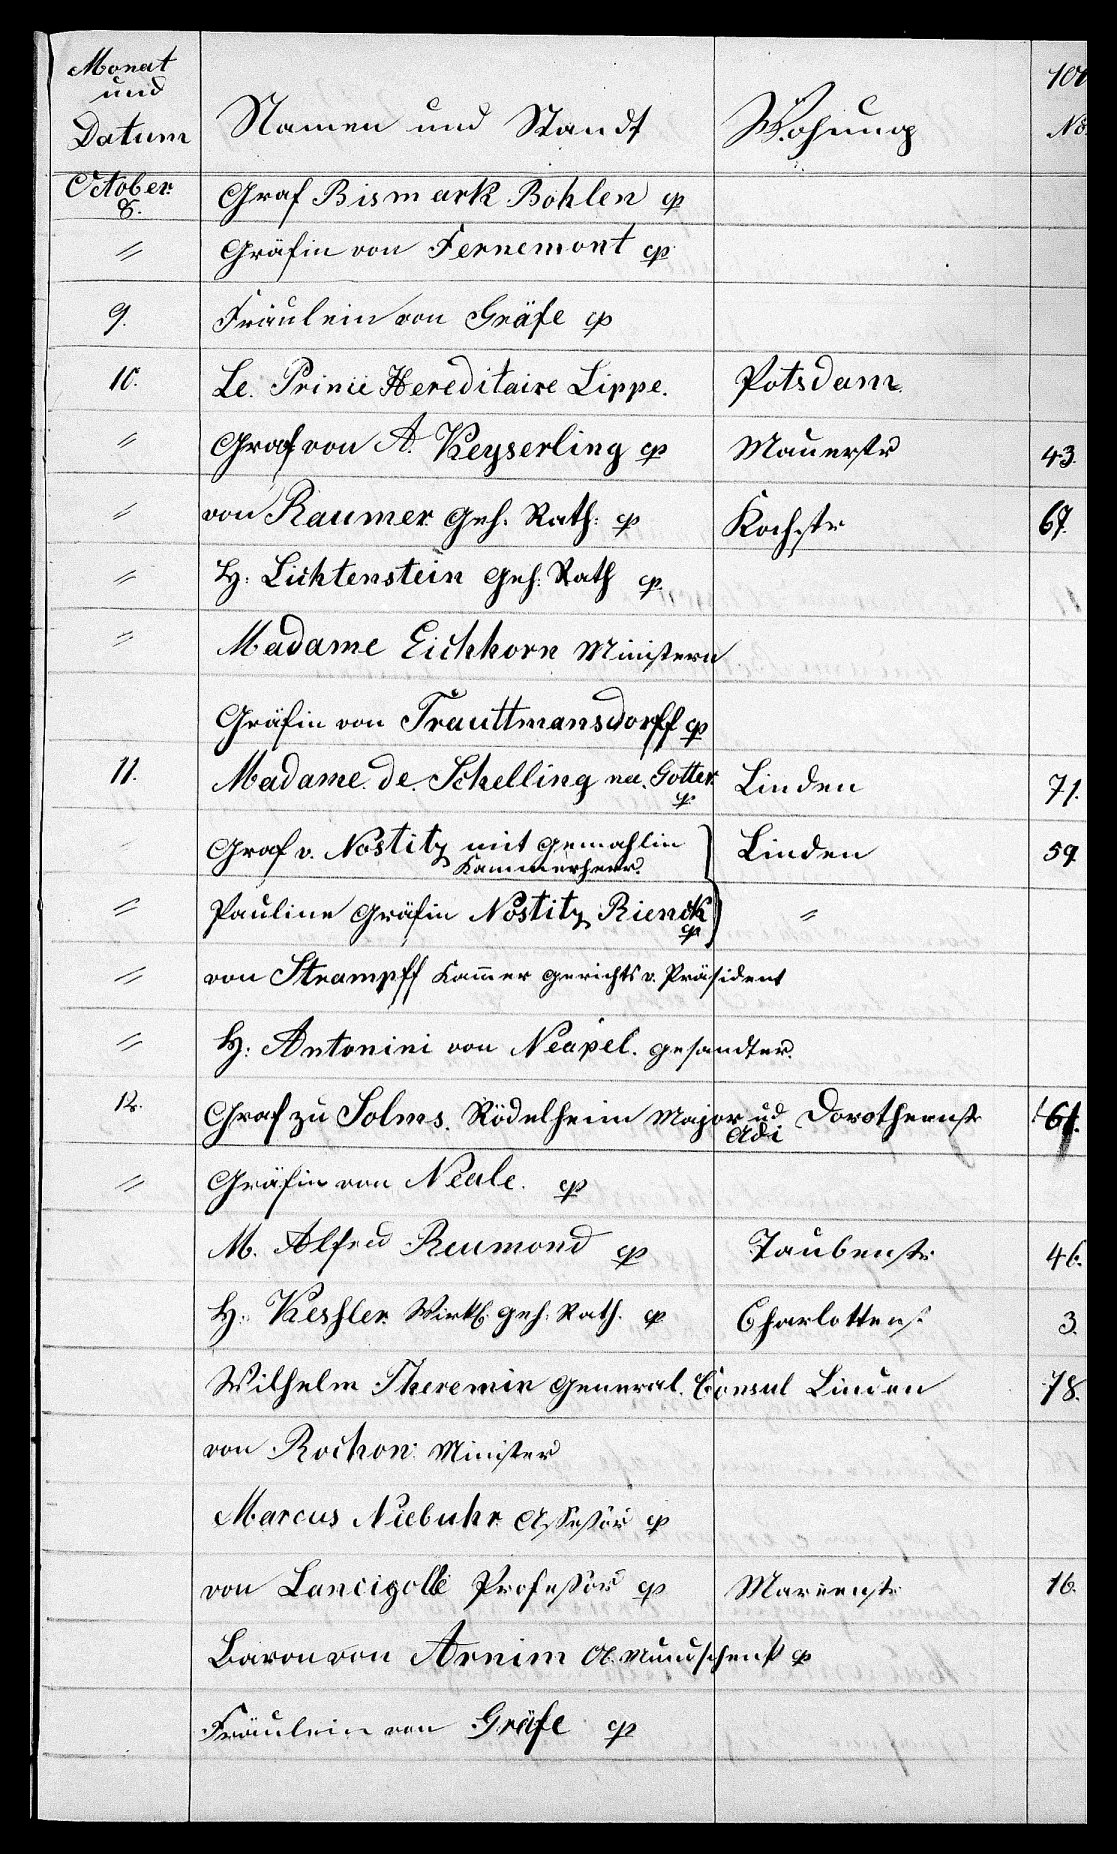 Monat
und
Datum Namen und Standt Wohnung No
October
8. Graf Bismark Bohlen cp
" Gräfin von Fernemont cp
9. Fräulein von Gräfe cp
10. Le. Prince Hereditaire Lippe. Potsdam
" Graf von A. Keyserling cp Mauerstr 43.
" von Raumer. Geh. Rath: cp Kochstr 67.
" H: Lichtenstein Geh: Rath cp.
" Madame Eichhorn Ministern
Gräfin von Trauttmansdorff cp
11. Madame. de. Schelling née. Gotter. Linden 71.
cp.
Graf v. Nostitz mit Gemahlin Linden 59
Kammerherr.
" Pauline Gräfin Nostitz Rieneck "
cp
" von Strampff Kam̅er Gerichts v. Präsident
" H: Antonini von Neapel. Gesandter.
12. Graf zu Solms. Rödelheim Major ud Dorotheenstr 61.
Adi
" Gräfin von Neale. cp
M. Alfred Reumond cp Taubenstr. 46.
H: Keshler. Wirkl. Geh: Rath. cp Charlottens. 3.
Wilhelm Theremin General. Consul Linden 78.
von Rochon: Minister
Marcus Niebuhr Assessor cp
von Lancizolle Professor cp Marienstr. 16.
Baron von Arnim O. Mundschenk cp
Fräulein von Gräfe cp